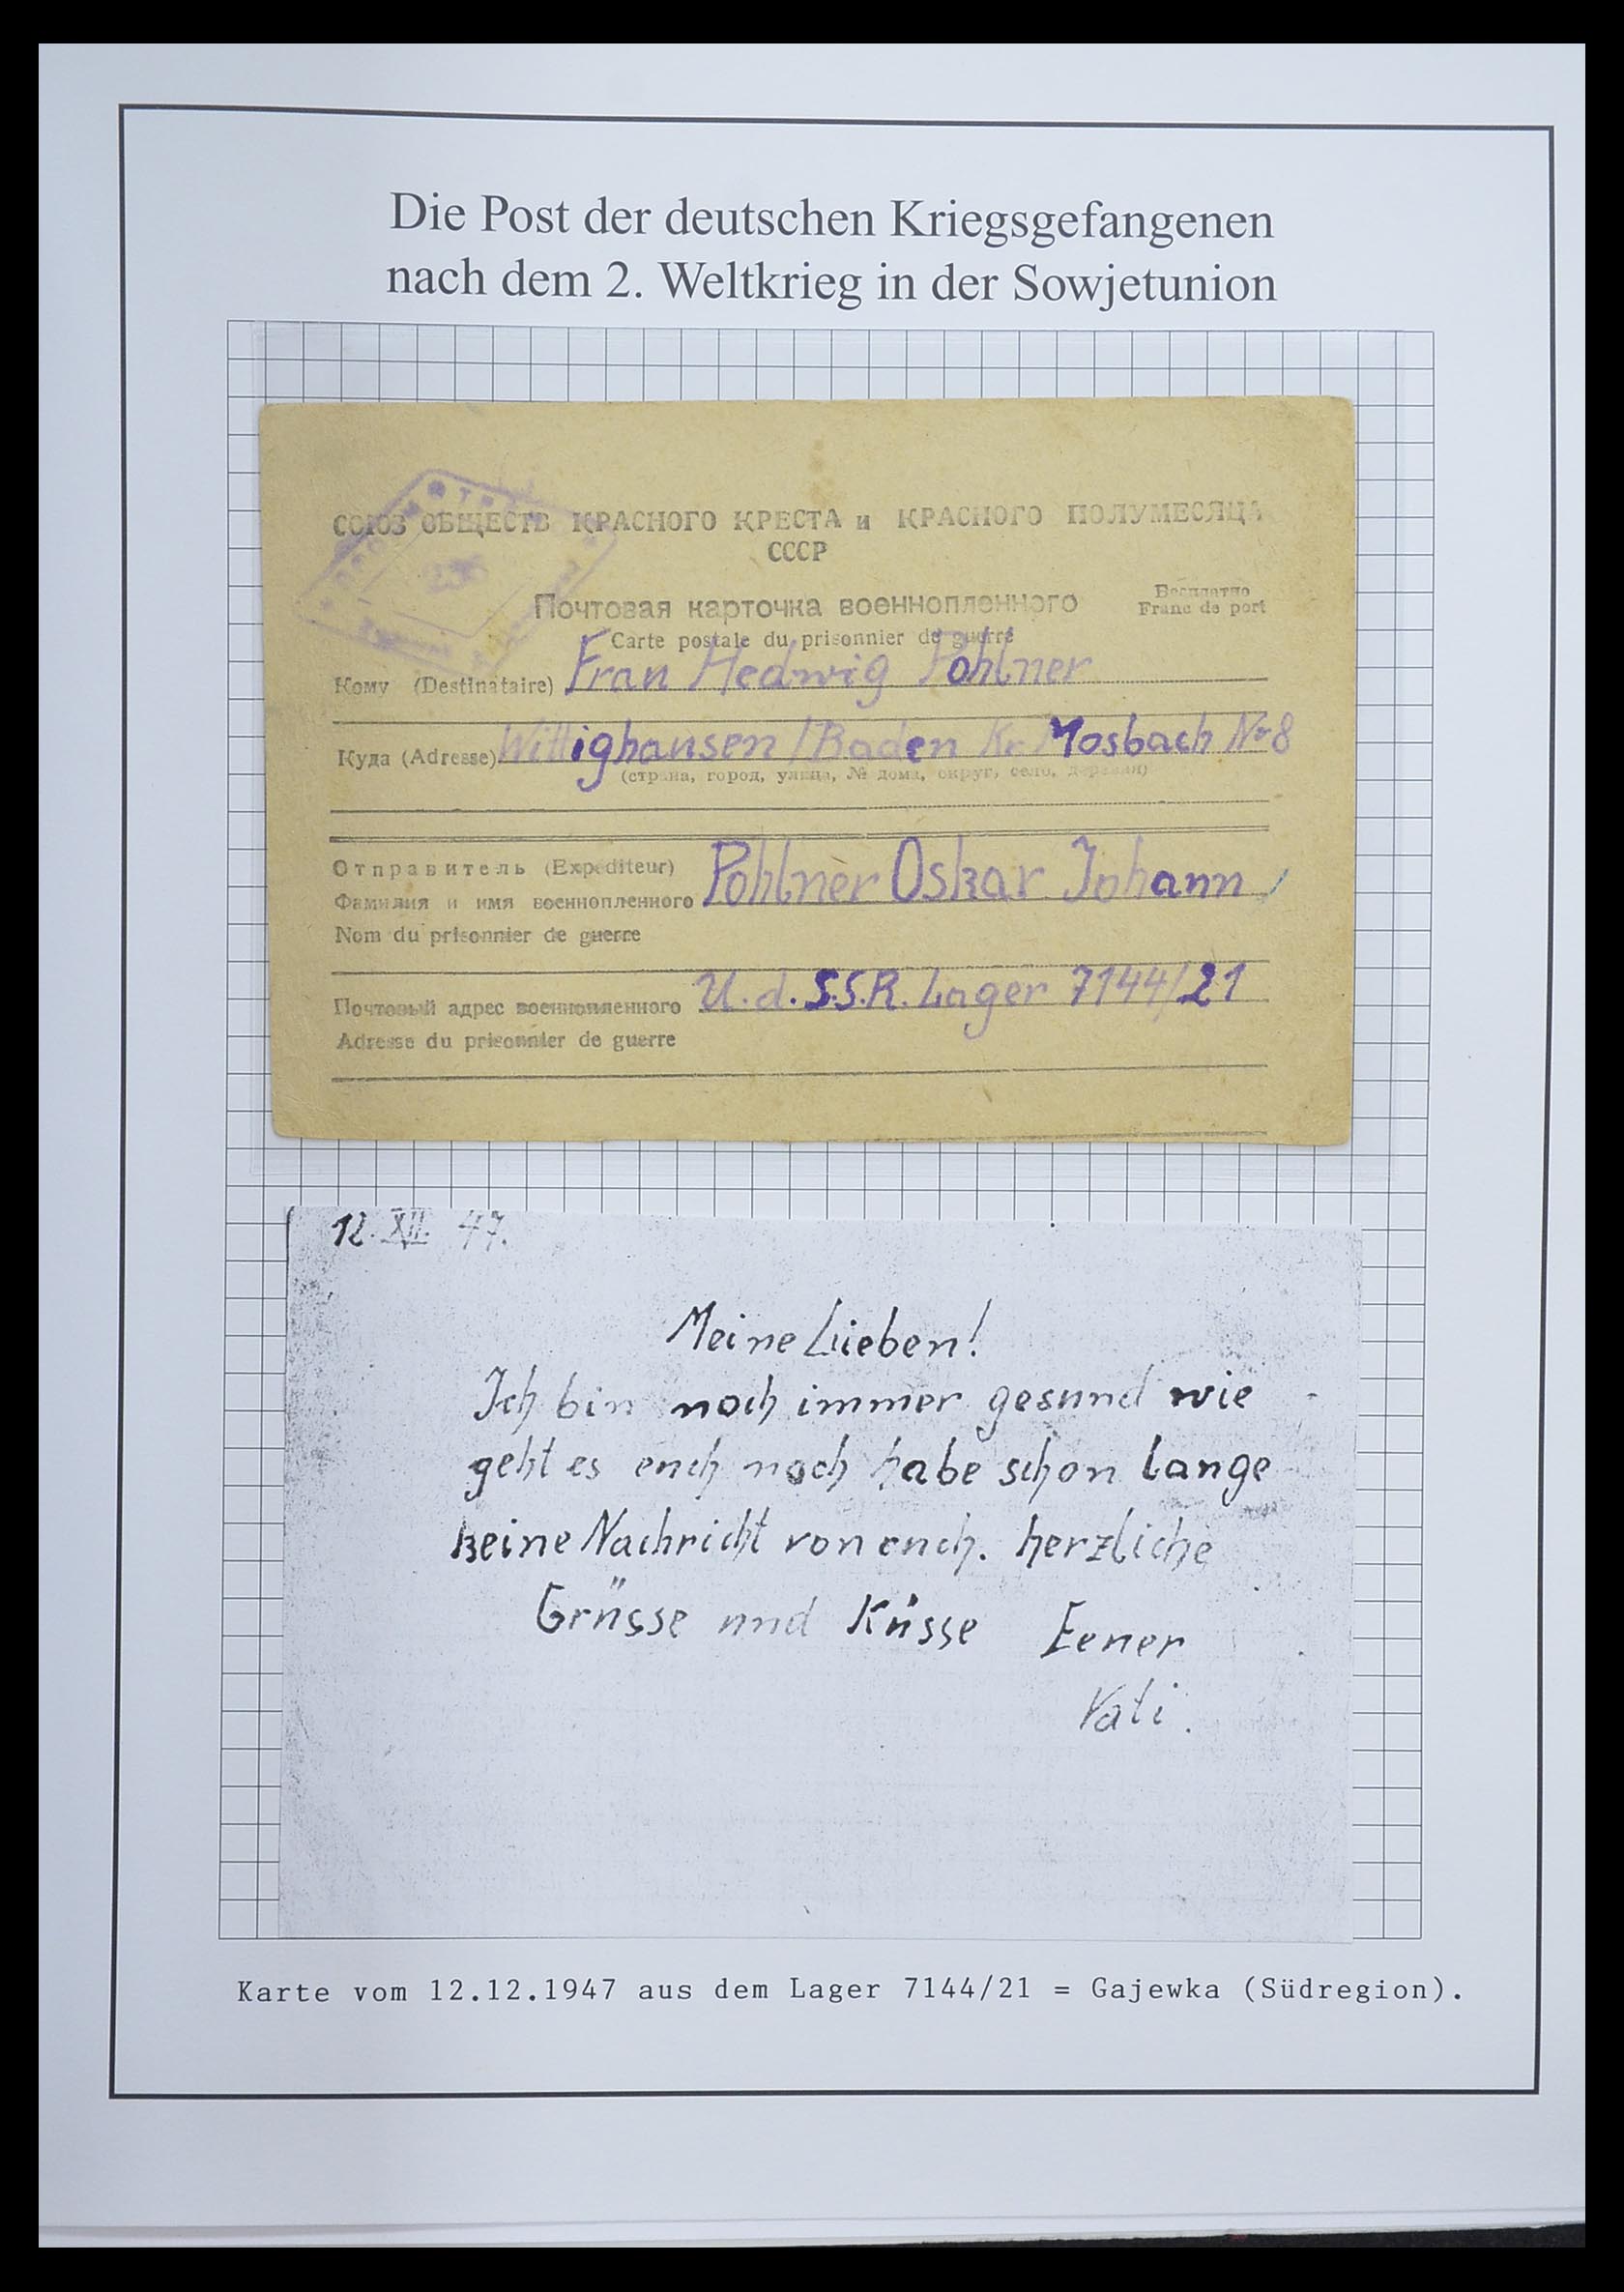 Die Post der deutschen Kriegsgefangenen
nach dem 2. Weltkrieg in der Sowjetunion
СОЮЗ ОБЩЕСТВ КРАСНОГО КРЕСТА и КРАСНОГО ПОЛУМЕСЯЦА
СССР
Почтовая карточка военнопленного
Бесплатно
Franc de port
Carte postale du prisonnier de guerre
Кому (Destinataire) Frau Hedwig Pohlner
Куда (Adresse) Wittighausen / Baden Kr. Mosbach Nr 8
(страна, город, улица, № дома, округ, село, деревня)
Отправитель (Expéditeur)
Фамилия и имя военнопленного Pohlner Oskar Johann
Nom du prisonnier de guerre
Почтовый адрес военнопленного U.d.S.S.R. Lager 7144/21
Adresse du prisonnier de guerre
12. XII. 47.
Meine Lieben!
Ich bin noch immer gesund wie
geht es euch noch habe schon lange
keine Nachricht von euch. herzliche
Grüsse und Küsse Eener
Vati.
Karte vom 12.12.1947 aus dem Lager 7144/21 = Gajewka (Südregion).